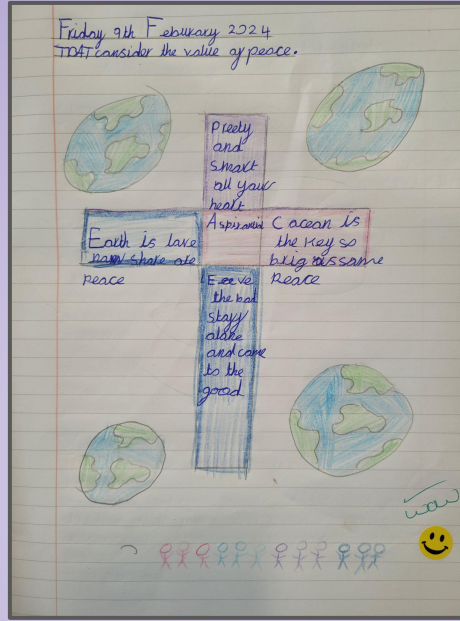 Friday 9th Feburary 2024
TDAT consider the value of peace.
Preety
and
smart
all your
heart
Earth is lare
share ate
peace
Aspiranin
C ocean is
the key so
brig ussame
Peace
Eerve
the bad
stayy
alone
and come
to the
good
wow